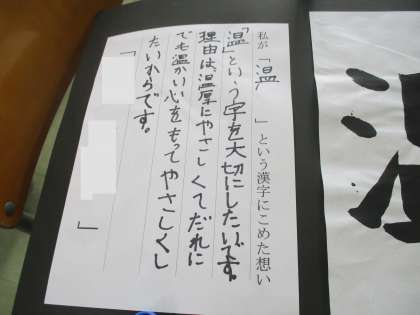 私が「温」という漢字にこめた想い
「温」という字を大切にしたいです。
理由は、温厚にやさしくてだれに
でも温かい心をもってやさしくし
たいからです。
「　」